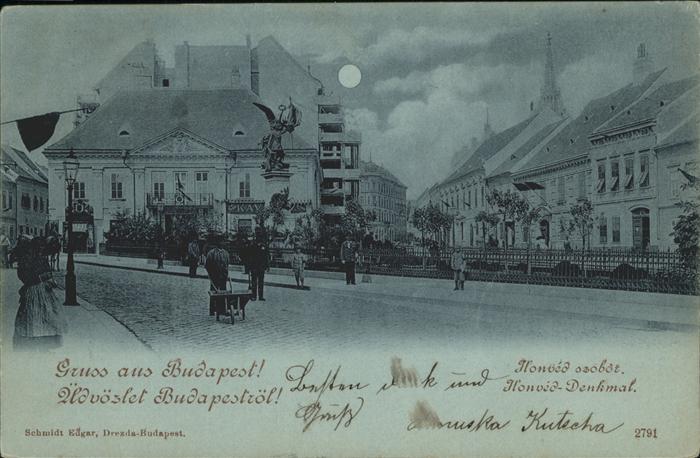 Gruss aus Budapest!
Üdvözlet Budapeströl!
Honvéd szobor.
Honvéd-Denkmal.
Besten und
Gruß
Kutscha
Schmidt Edgar, Drezda-Budapest.
2791